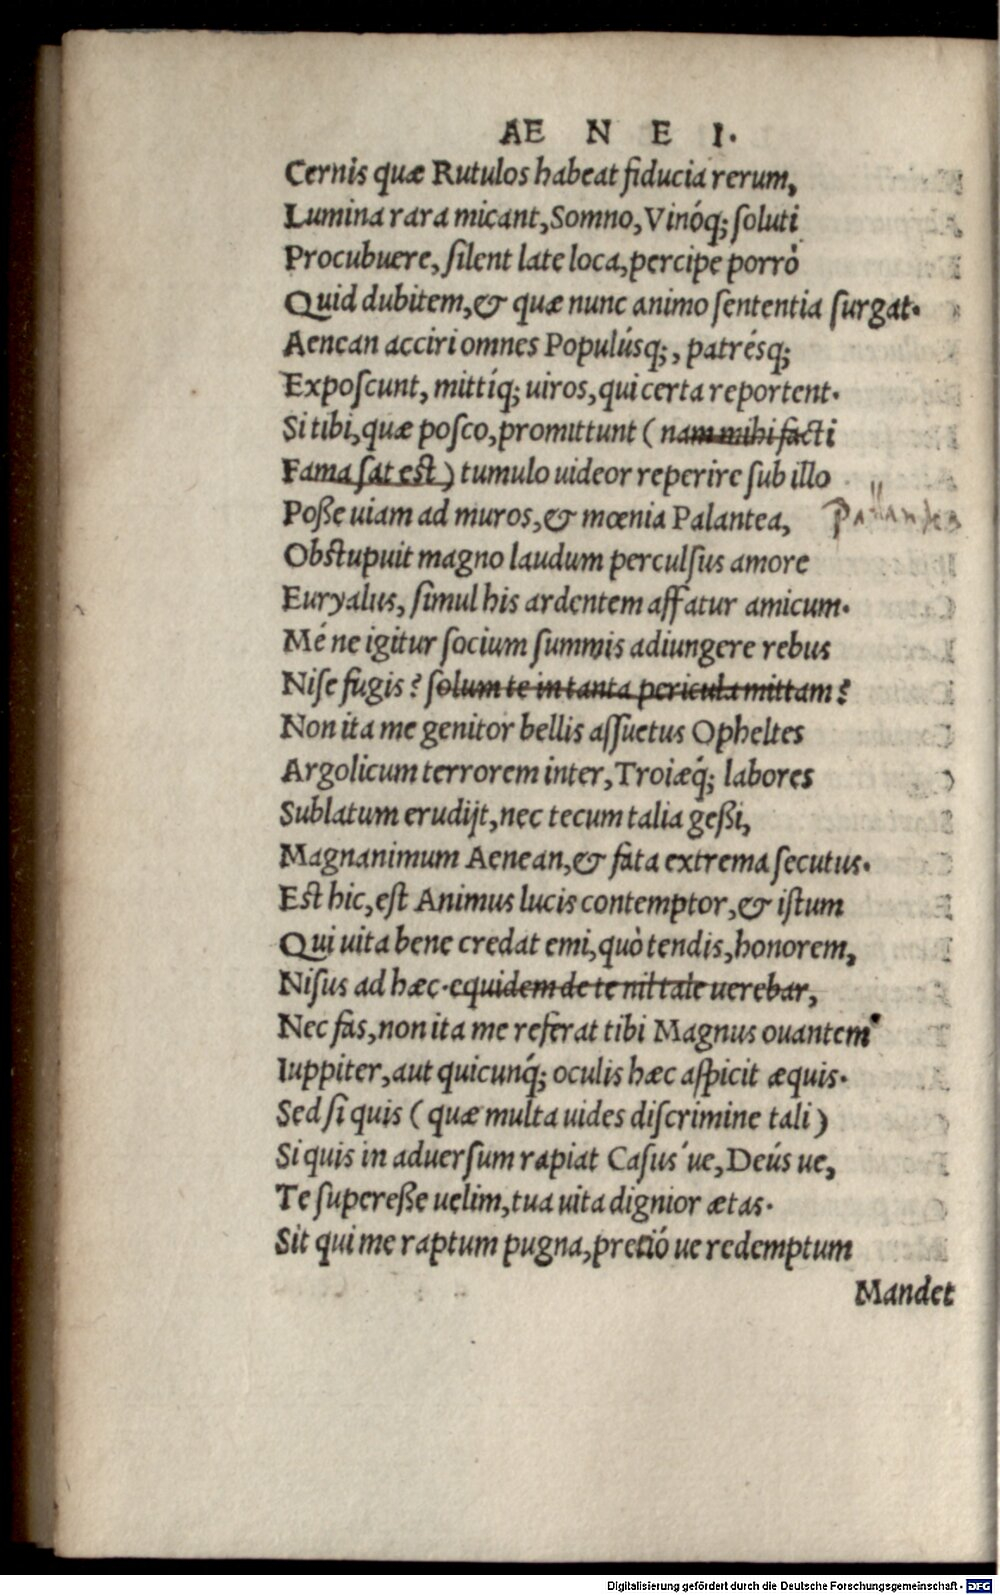 AE N E I.
Cernis quæ Rutulos habeat fiducia rerum,
Lumina rara micant, Somno, Vinóq; soluti
Procubuere, silent late loca, percipe porrò
Quid dubitem, & quæ nunc animo sententia surgat.
Aenean acciri omnes Populúsq;, patrésq;
Exposcunt, mittíq; uiros, qui certa reportent.
Si tibi, quæ posco, promittunt ( nam mihi facti
Fama sat est ) tumulo uideor reperire sub illo
Poße uiam ad muros, & mœnia Palantea, Pallantea
Obstupuit magno laudum perculsus amore
Euryalus, simul his ardentem affatur amicum.
Mé ne igitur socium summis adiungere rebus
Nise fugis? solum te in tanta pericula mittam?
Non ita me genitor bellis assuetus Opheltes
Argolicum terrorem inter, Troiæq́; labores
Sublatum erudijt, nec tecum talia geßi,
Magnanimum Aenean, & fata extrema secutus.
Est hic, est Animus lucis contemptor, & istum
Qui uita bene credat emi, quò tendis, honorem,
Nisus ad hæc. equidem de te nil tale uerebar,
Nec fas, non ita me referat tibi Magnus ouantem
Iuppiter, aut quicunq́; oculis hæc aspicit æquis.
Sed si quis ( quæ multa uides discrimine tali )
Si quis in aduersum rapiat Casus´ue, Deús ue,
Te supereße uelim, tua uita dignior ætas.
Sit qui me raptum pugna, pretió ue redemptum
Mandet
Digitalisierung gefördert durch die Deutsche Forschungsgemeinschaft - DFG